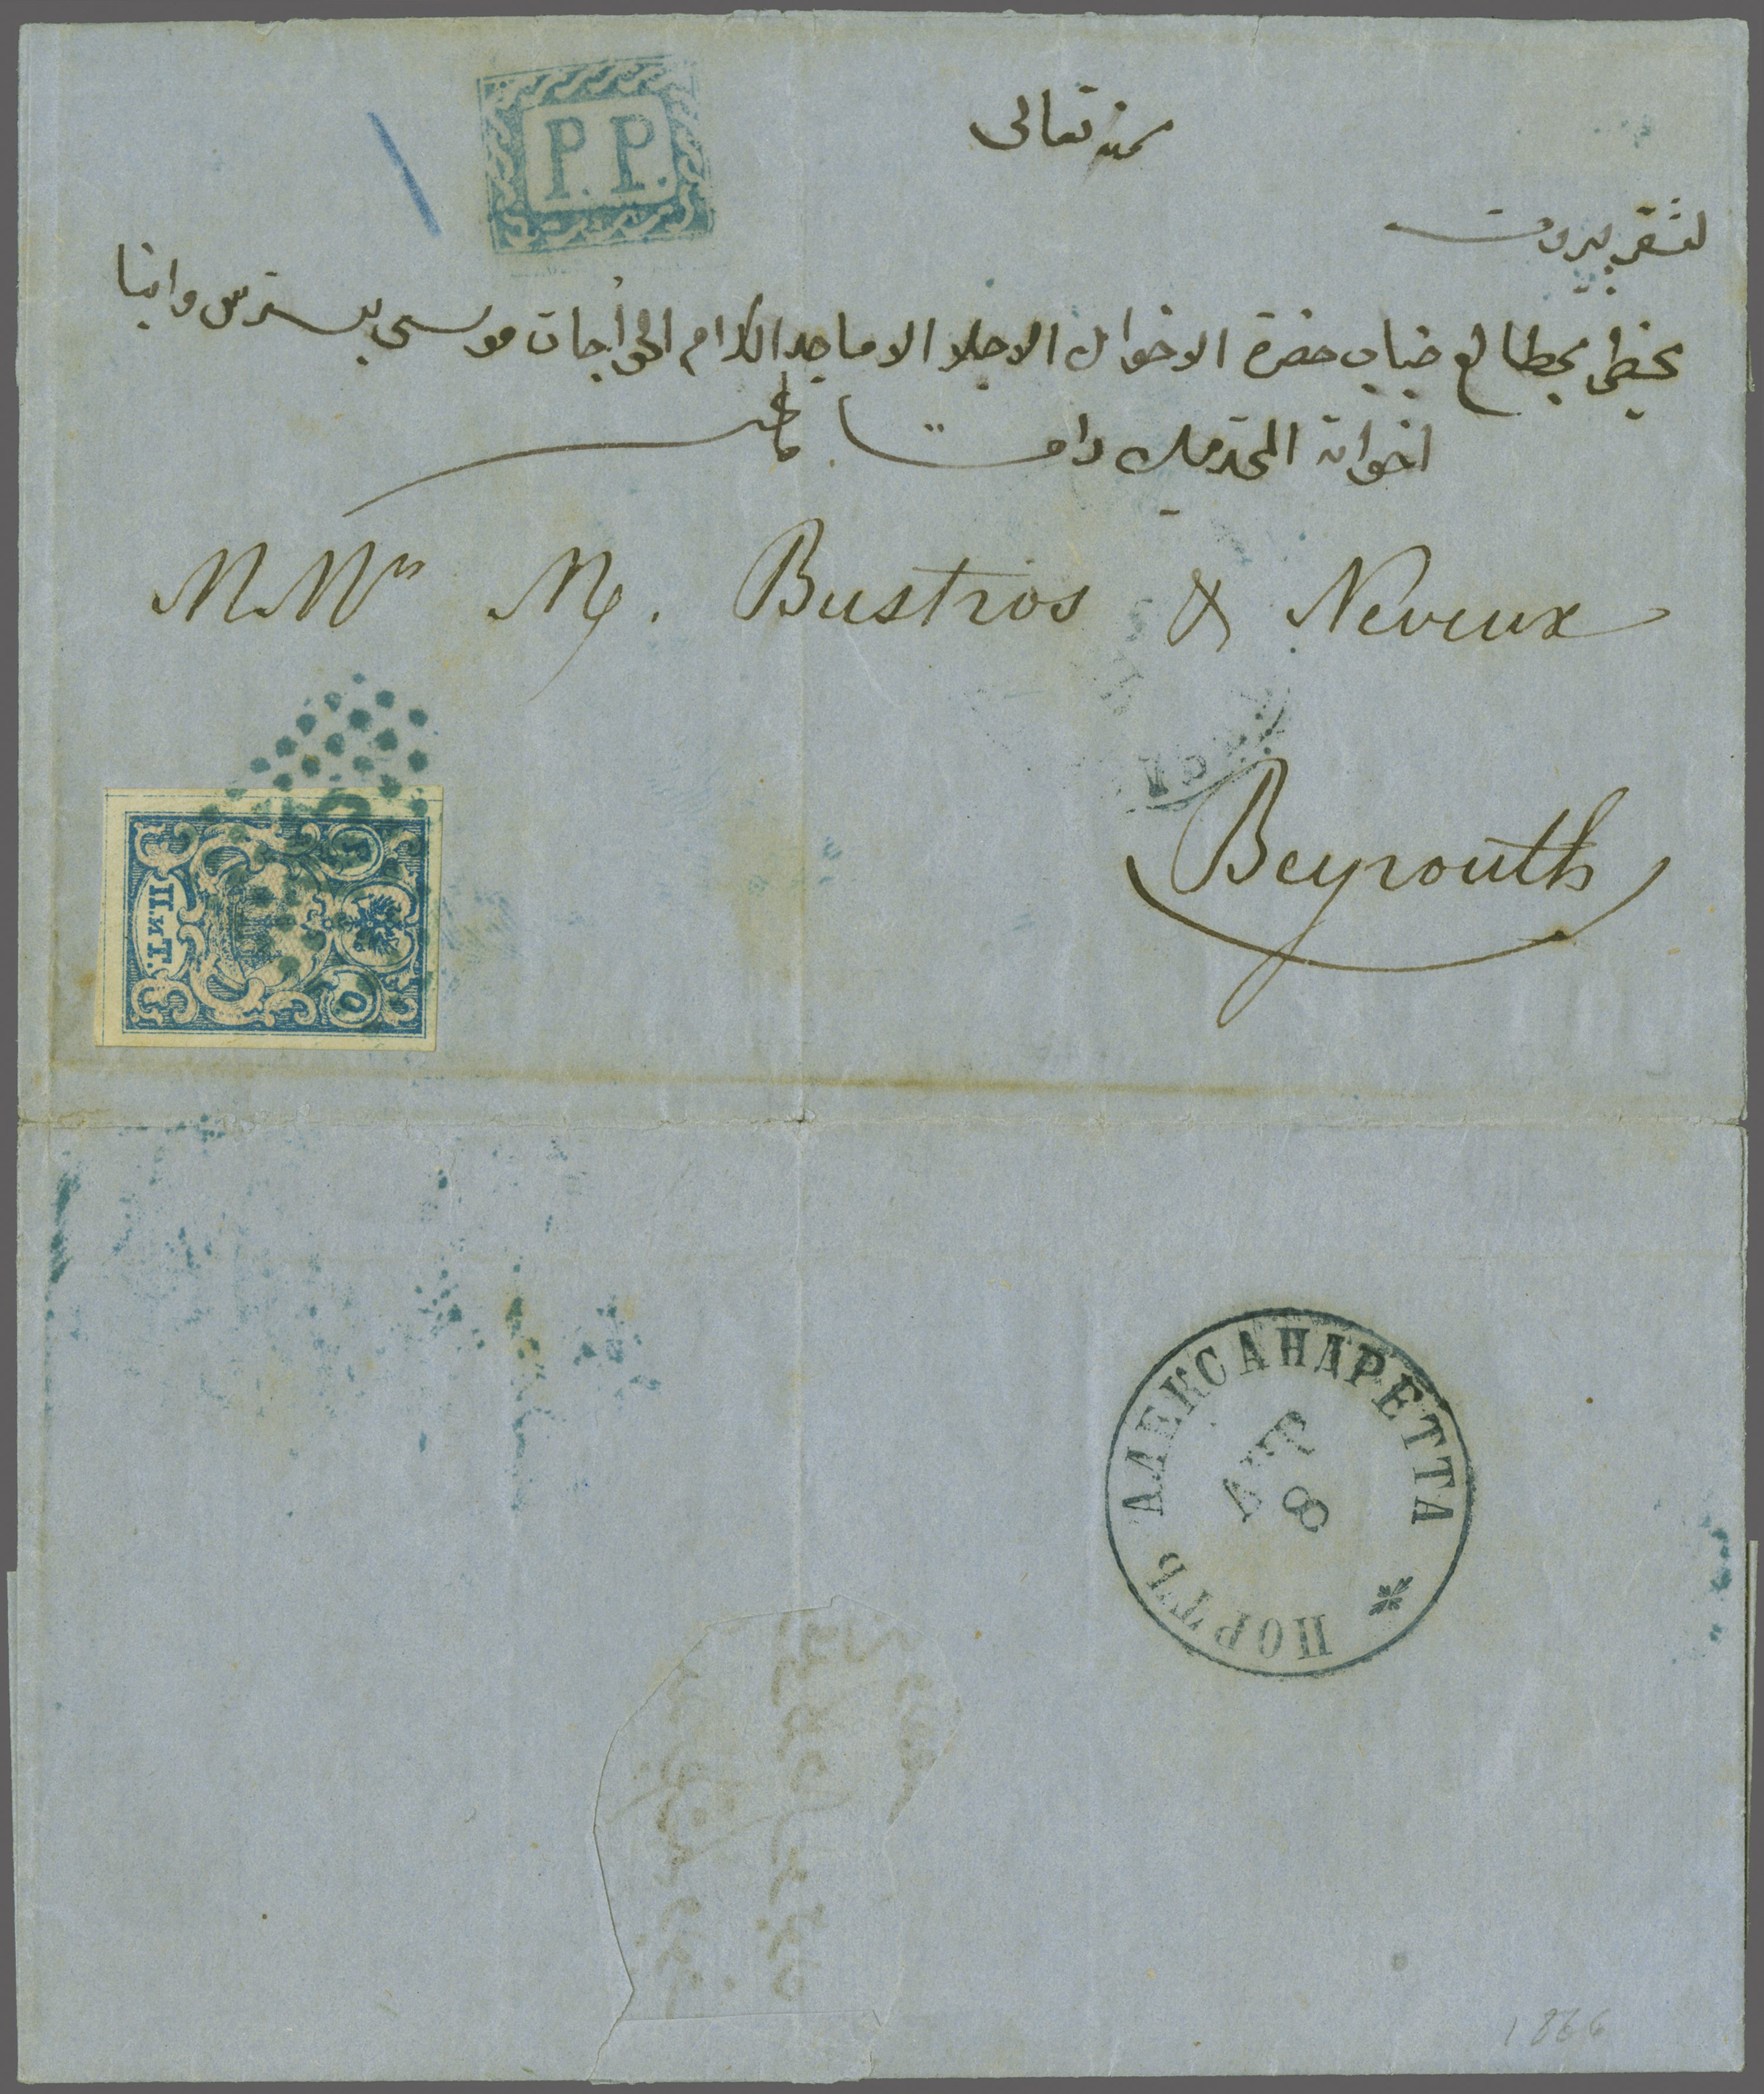 P.P.
بمنه تعالى
لثغر بيروت
يحظى بمطالع جناب حضرة الاخوان الاجلا الاماجد الكرام الخواجات موسى بسترس وابنا
اخوانه المحترمين دام
M Mrs M. Bustros & Neveux
Beyrouth
Р.О. П. и Т.
ПОРТЪ АЛЕКСАНДРЕТТА
АВГ
8
1866